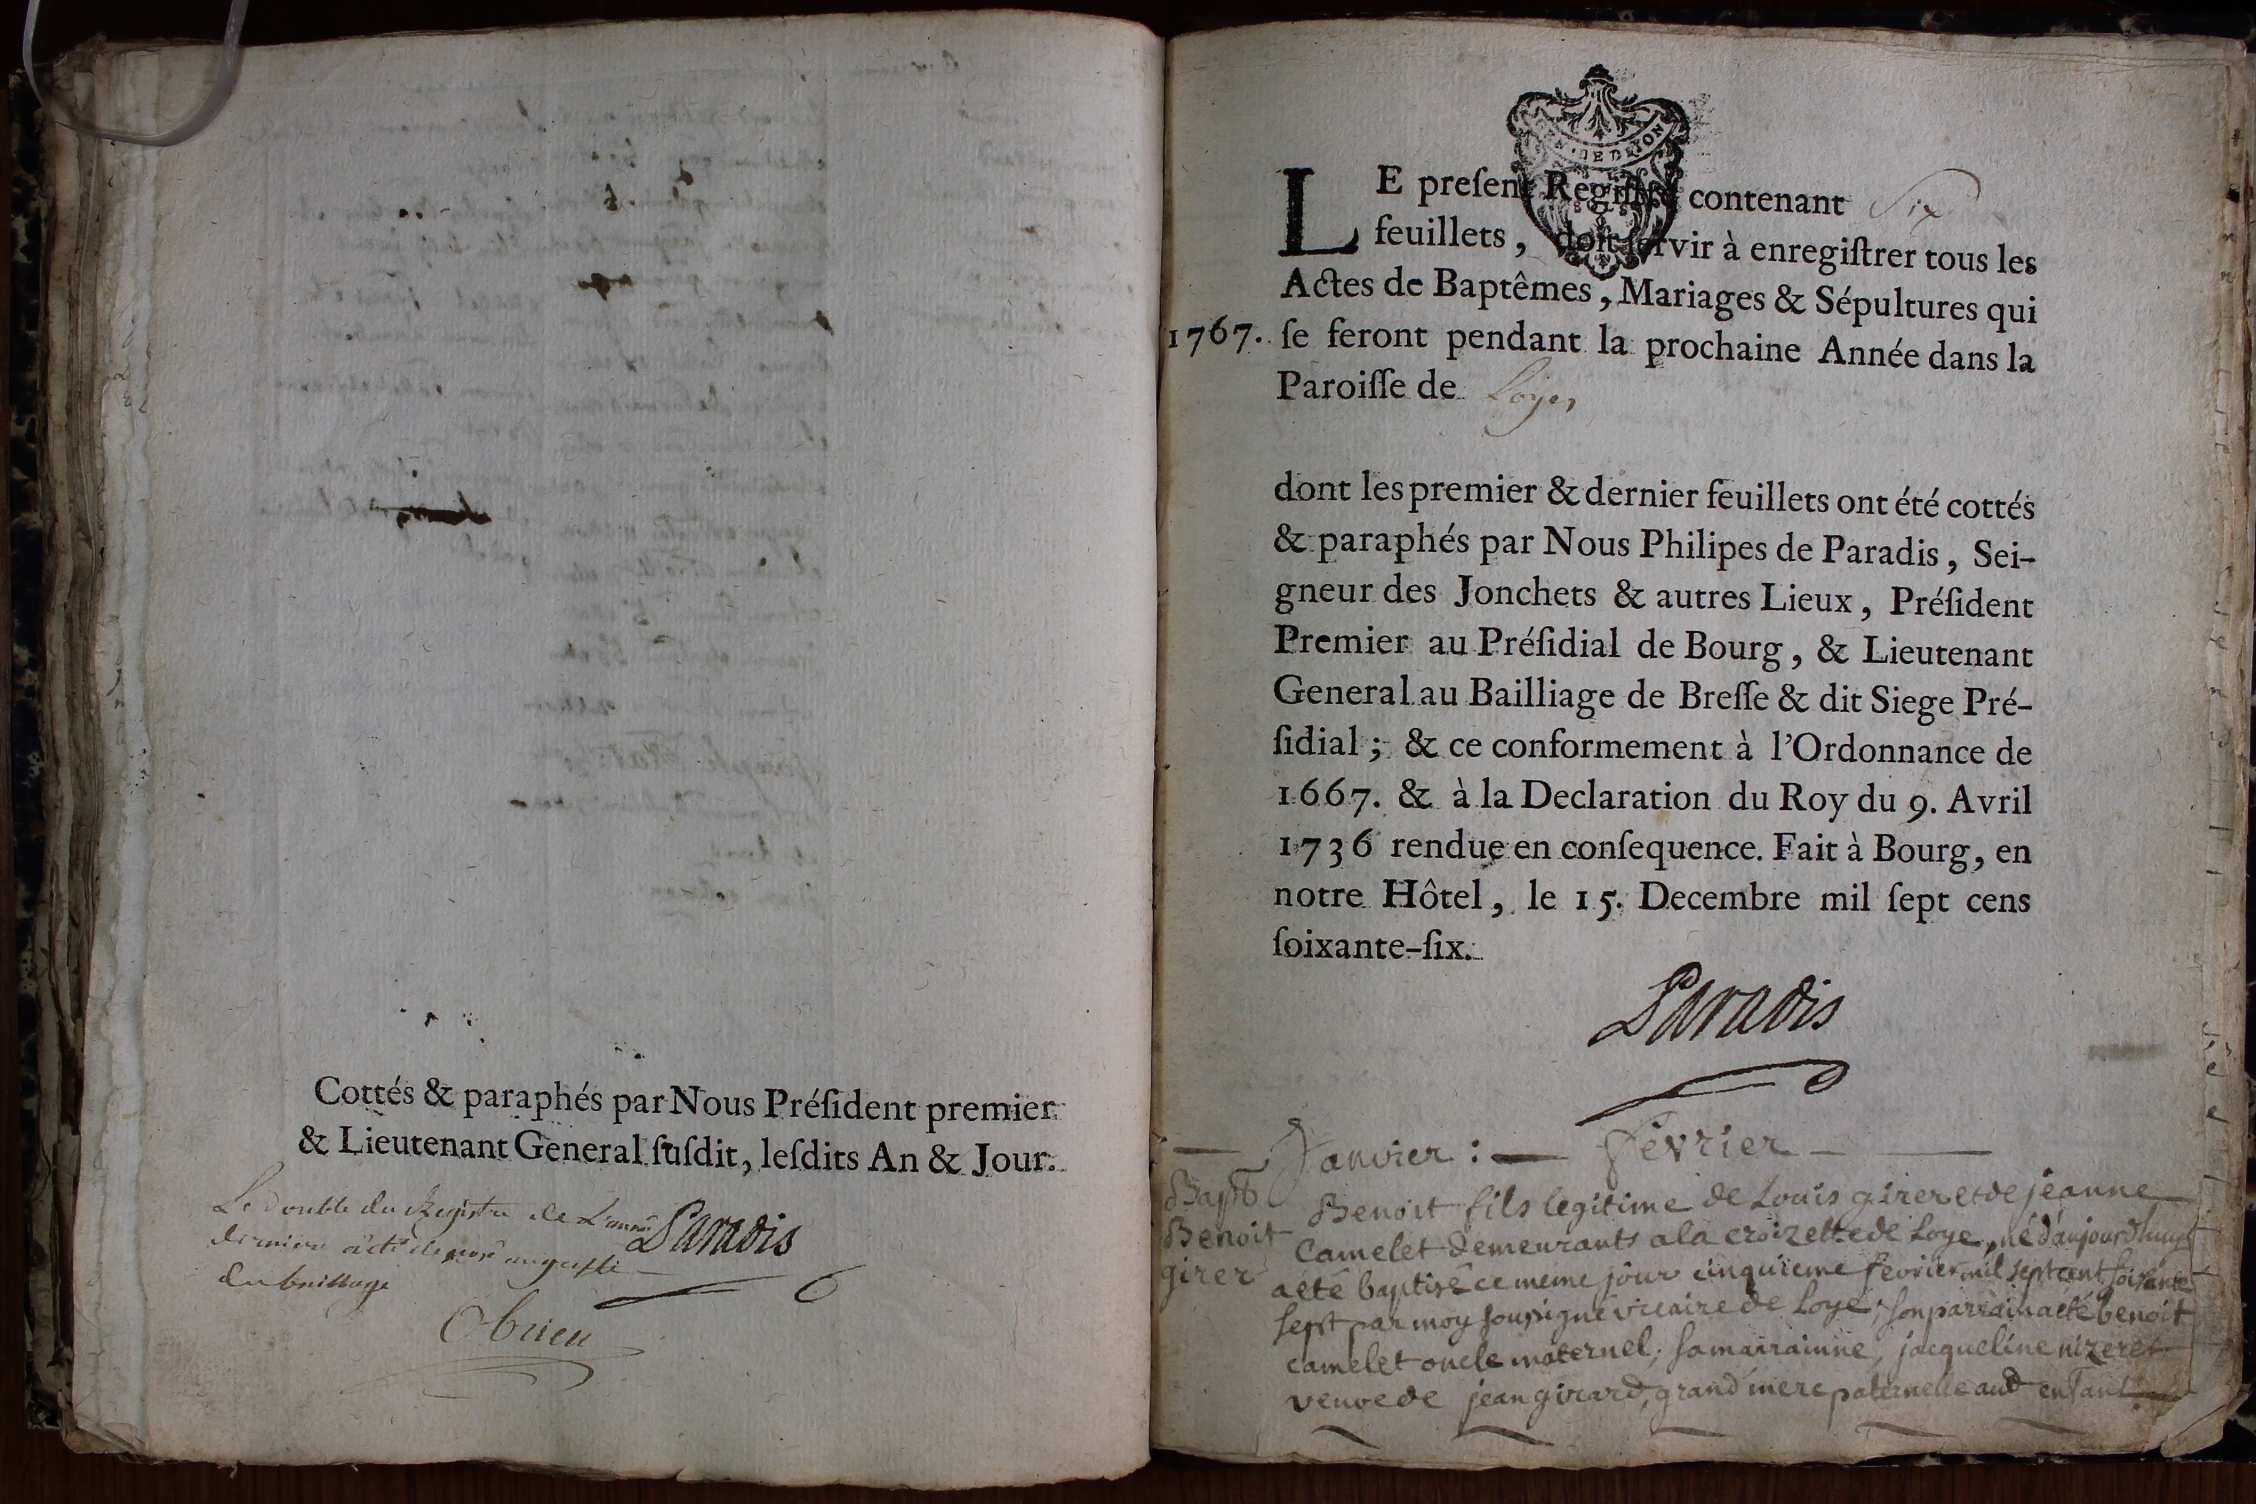 Cottés & paraphés par Nous Préſident premier
& Lieutenant General ſuſdit, leſdits An & Jour.
Le double du Registre de L'année
derniere a été déposé au greffe
du bailliage
Paradis
LE preſent Regiſtre contenant Six
feuillets, doit ſervir à enregiſtrer tous les
Actes de Baptêmes, Mariages & Sépultures qui
1767. ſe feront pendant la prochaine Année dans la
Paroiſſe de Loyes
dont les premier & dernier feuillets ont été cottés
& paraphés par Nous Philipes de Paradis, Sei-
gneur des Jonchets & autres Lieux, Préſident
Premier au Préſidial de Bourg, & Lieutenant
General au Bailliage de Breſſe & dit Siege Pré-
ſidial; & ce conformement à l'Ordonnance de
1667. & à la Declaration du Roy du 9. Avril
1736 rendue en conſequence. Fait à Bourg, en
notre Hôtel, le 15. Decembre mil ſept cens
ſoixante-ſix.
Paradis
Janvier : — fevrier —
Bapt Benoit fils legitime de Louis girer et de jeanne
Benoit Camelet demeurants a la croizette de Loye, né d'aujourdhuy
girer a eté baptisé ce meme jour cinquieme fevrier mil sept cent soixante
sept par moy soussigné vicaire de Loye; son parrain a eté benoit
camelet oncle maternel; sa mairainne, jacqueline nizeret
veuve de jean girard, grand mere paternelle aud enfant